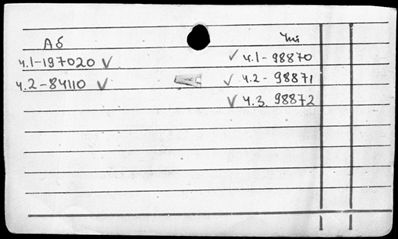 Аб
ч.1-197020 ✓
ч.2-84110 ✓
Чт
✓ ч.1-98870
✓ ч.2-98871
✓ ч.3. 98872